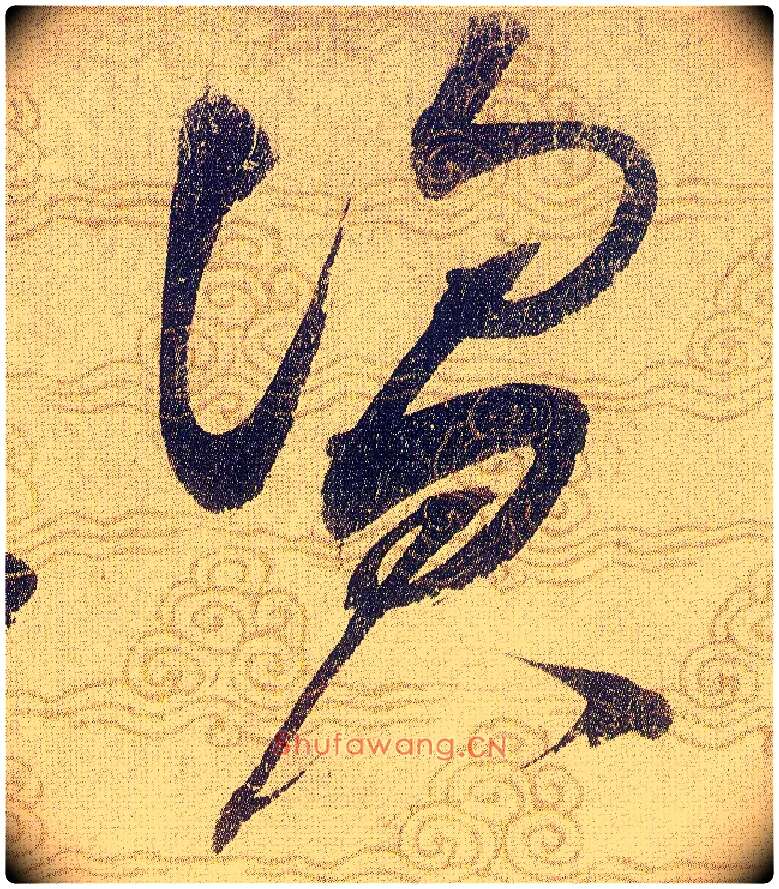 資
shufawang.CN